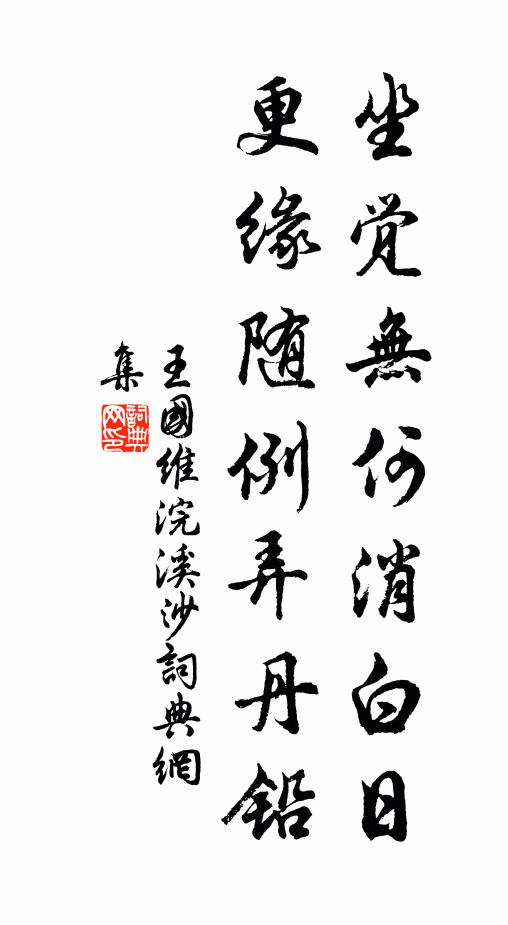 坐觉無何消白日
更缘随例弄丹铅
王國維浣溪沙詞典網
集
詞典網印